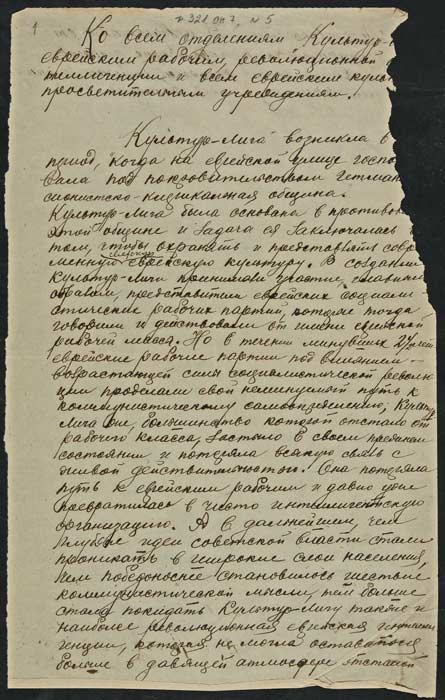 ф 321 оп 7, № 5
1
Ко всем отделениям Культур-
еврейским рабочим, революционной
теллигенции и всем еврейским куль
просветительным учреждениям!
Культур-Лига возникла в
риод, когда на еврейской улице госпо
вала под покровительством гетмана
сионистско-клерикальная община.
Культур-Лига была основана в противовес
этой общине и задача ея заключалась в
том, чтобы охранять и представлять совре
менную еврейскую культуру. В создании
Культур-Лиги принимали участие, главным
образом, представители еврейских социали
стических рабочих партий, которые тогда
говорили и действовали от имени еврейской
рабочей массы. Но в течении минувших 2½ лет
еврейские рабочие партии под влиянием
возрастающей силы социалистической револю
ции проделали свой неминуемый путь к
коммунистическому самоопределению; Культур
Лига же, большинство которой отстало от
рабочего класса, застыло в своем прежнем
состоянии и потеряла всякую связь с
живой действительностью. Она потеряла
путь к еврейским рабочим и давно уже
превратилась в чисто интеллигентскую
организацию. А в дальнейшем, чем
глубже идеи советской власти стали
проникать в широкие слои населения,
чем победоноснее становилось шествие
коммунистической мысли, тем больше
стала покидать Культур-Лигу также и
наиболее революционная еврейская интелли
генция, которая не могла оставаться
больше в давящей атмосфере отсталой